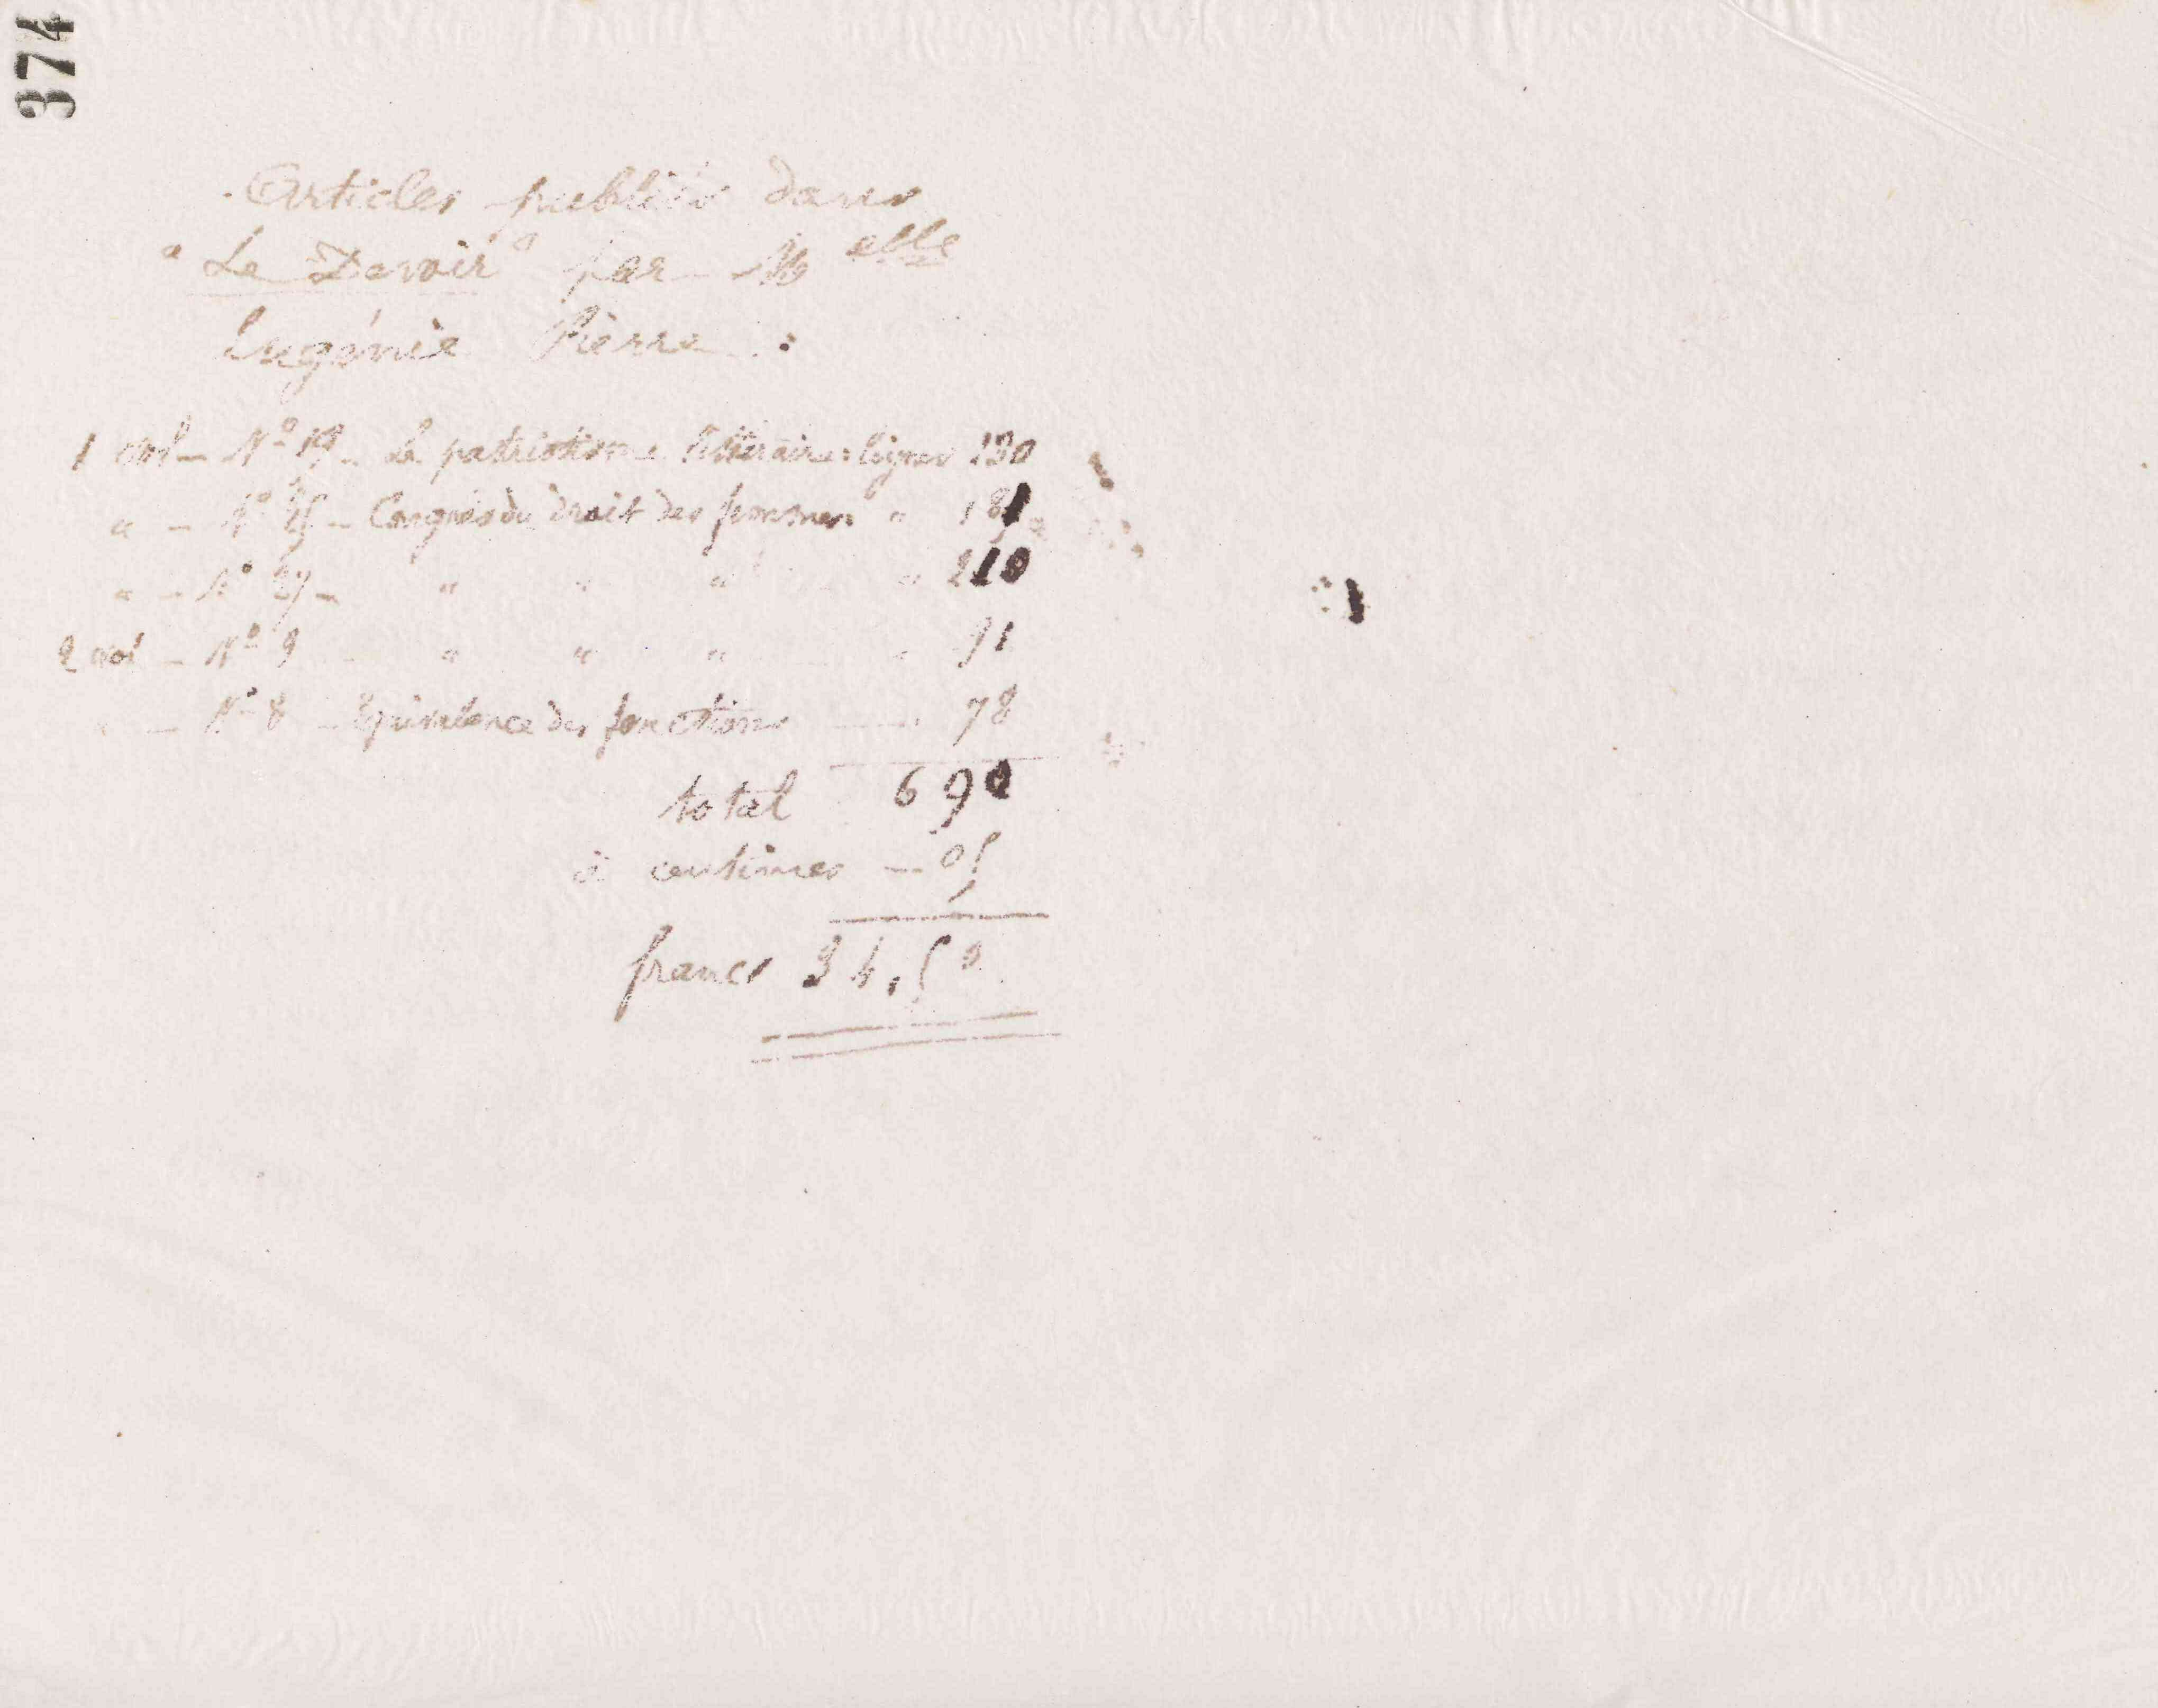 374
Articles publiés dans
"Le Devoir" par Melle
Eugénie Pierre :
1 vol — No 19 — Le patriotisme littéraire : lignes 130
" — No 25 — Congrès du droit des femmes " 181
" — No 27 — " " " " 210
2 vol — No 9 " " " " 91
— No 8 — Equivalence des fonctions 78
total 690
à centimes — 05
francs 34,50